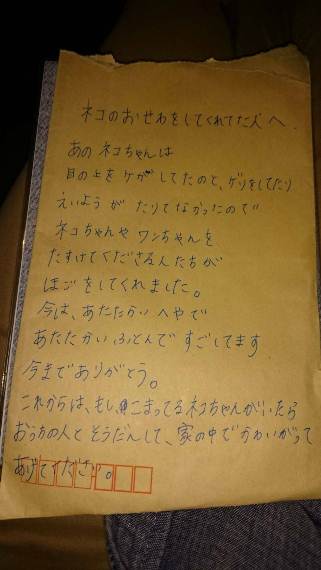 ネコのおせわをしてくれてた人へ
あのネコちゃんは
目の上をケガしてたのと、ゲリをしてたり
えいようがたりてなかったので
ネコちゃんやワンちゃんを
たすけてくださる人たちが
ほごをしてくれました。
今は、あたたかいへやで
あたたかいふとんですごしてます
今までありがとう。
これからは、もし、こまってるネコちゃんがいたら
おうちの人とそうだんして、家の中でかわいがって
あげてください。